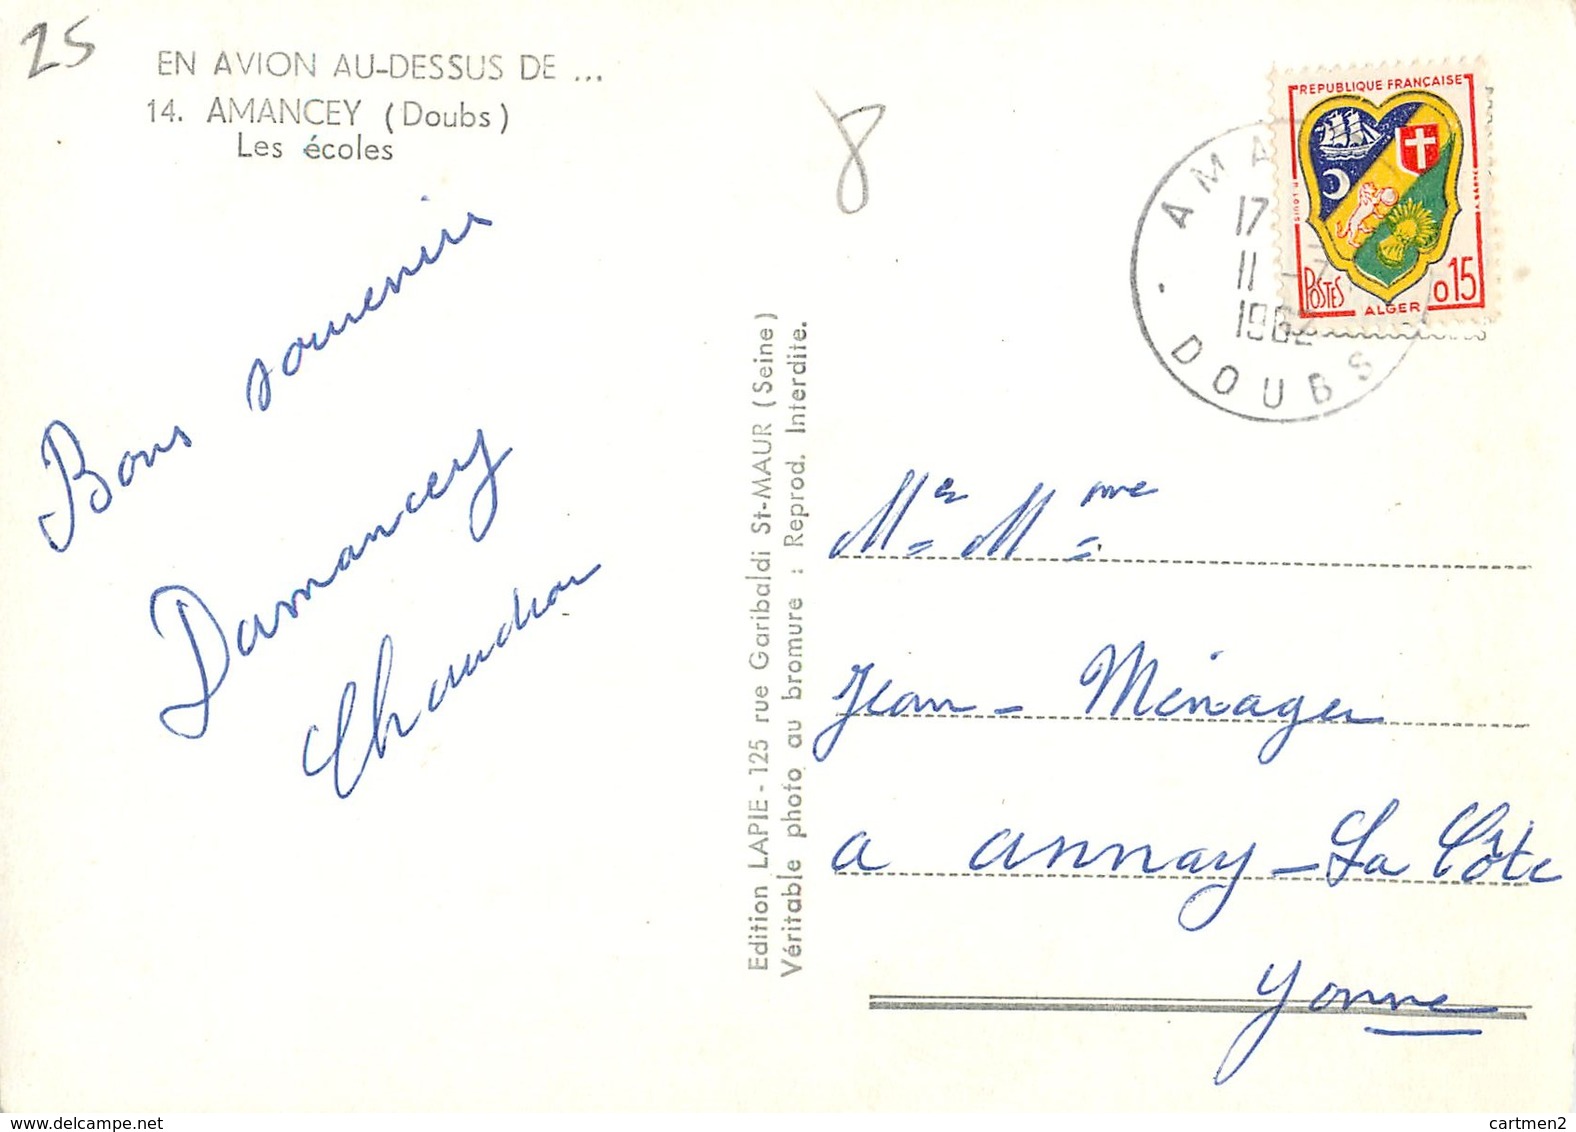 25
EN AVION AU-DESSUS DE ...
14. AMANCEY (Doubs)
Les écoles
Bons souvenirs
Damancey
Chaudron
Edition LAPIE - 125 rue Garibaldi St-MAUR (Seine)
Véritable photo au bromure : Reprod. Interdite.
8
REPUBLIQUE FRANÇAISE
POSTES
ALGER
0,15
AMA
17
11 -7
1962
DOUBS
Mr Mme
Jean - Ménager
a annay - La Côte
Yonne
www.delcampe.net
cartmen2